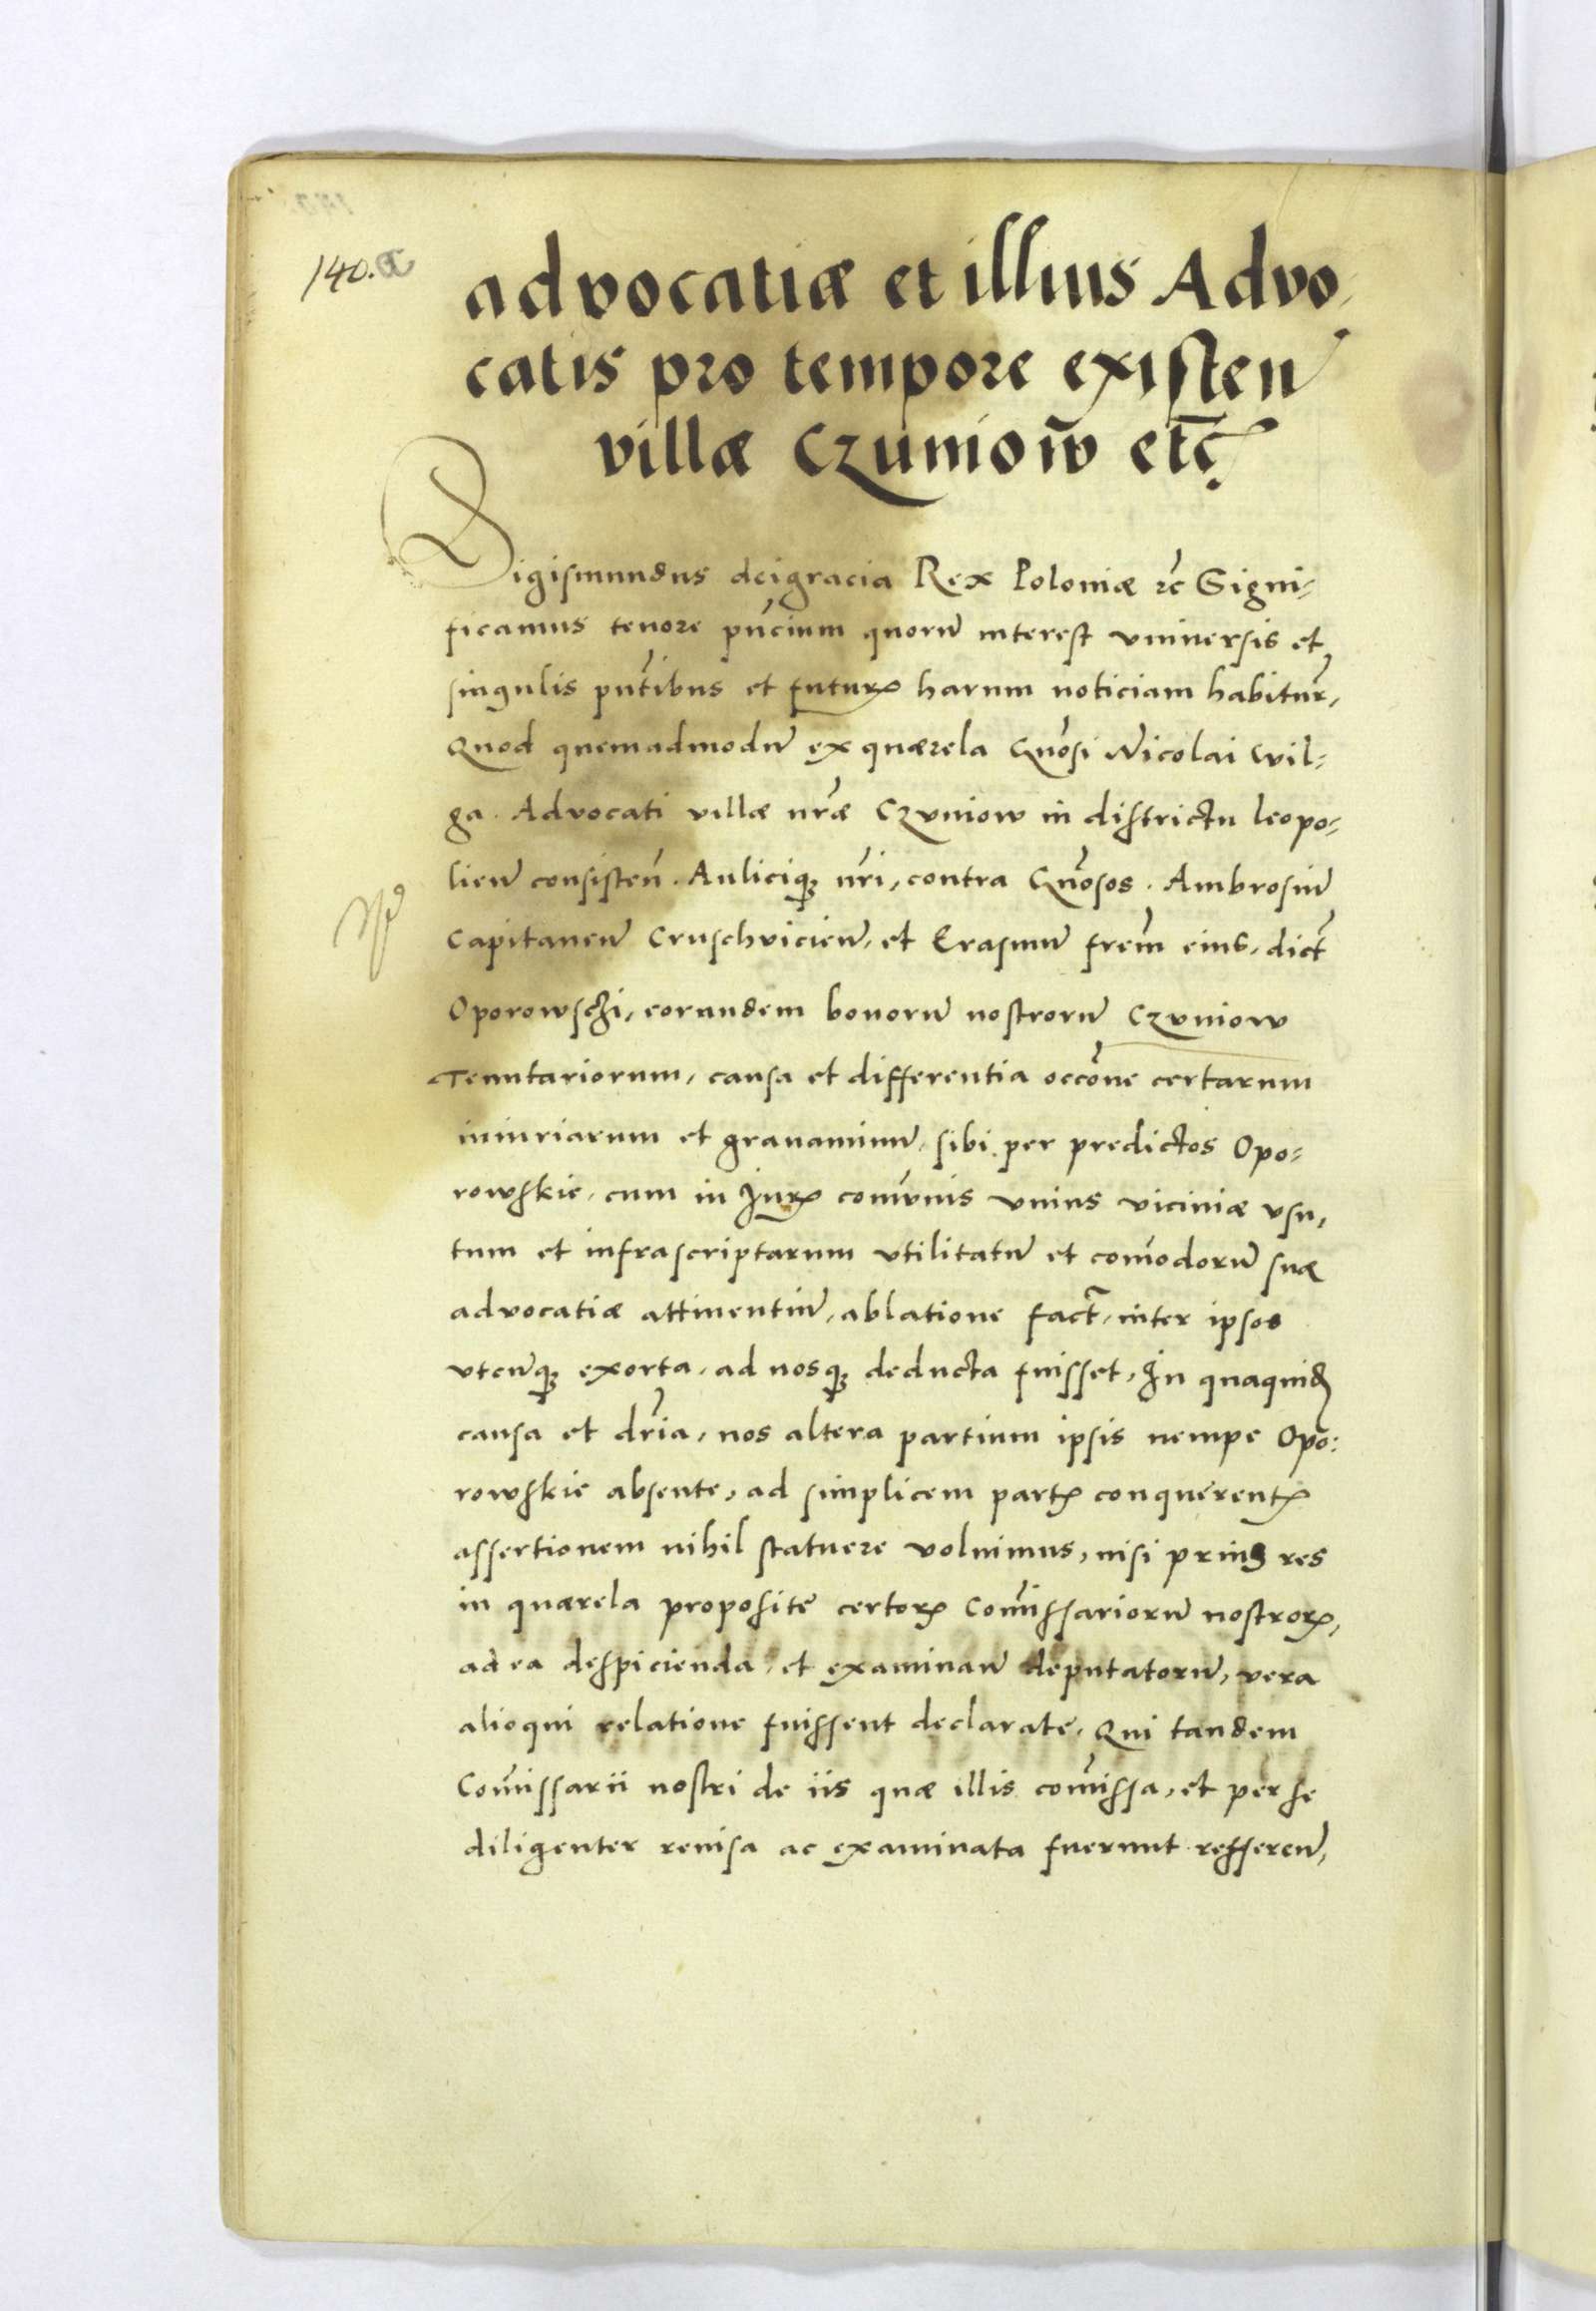 140. a
advocatiæ et illius Advo-
catis pro tempore existen̄
villæ Czuniow̄ etc̄
Sigismundus deigracia Rex Poloniæ ꝛc̄ Signi-
ficamus tenore pn̄cium quorū interest universis et
singulis pn̄tibus et futurꝝ harum noticiam habitur̄,
Quod quemadmodū ex quærela Gn̄osi Nicolai Wil-
ga. Advocati villæ nr̄æ Czuniow in districtu leopo-
lien̄ consisten̄. Auliciqꝫ nr̄i, contra Gn̄osos. Ambrosiū
Nꝰ
Capitaneū Cruschvicien̄, et Erasmū frēm eius, dict̄
Oporowschi, eorundem bonorū nostrorū Czuniow
Tenutariorum, causa et differentia occōne certarum
iniuriarum et grauaminū, sibi per predictos Opo-
rowskie, cum in Jurꝝ com̄unis unius viciniæ usu,
tum et infrascriptarum utilitatū et com̄odorū suæ
advocatiæ attinentiū, ablatione fact̄, inter ipsos
utcūqꝫ exorta, ad nosqꝫ deducta fuisset, In quaquid̄
causa et dr̄ia, nos altera partium ipsis nempe Opo-
rowskie absente, ad simplicem partꝭ conquerentꝭ
assertionem nihil statuere voluimus, nisi prius res
in quærela proposite certorꝝ Com̄issariorū nostrorꝝ,
ad ea despicienda, et examinan̄ deputatorū, vera
alioqui relatione fuissent declarate, Qui tandem
Com̄issarii nostri de iis quæ illis com̄issa, et per se
diligenter reuisa ac examinata fuerunt refferen̄,